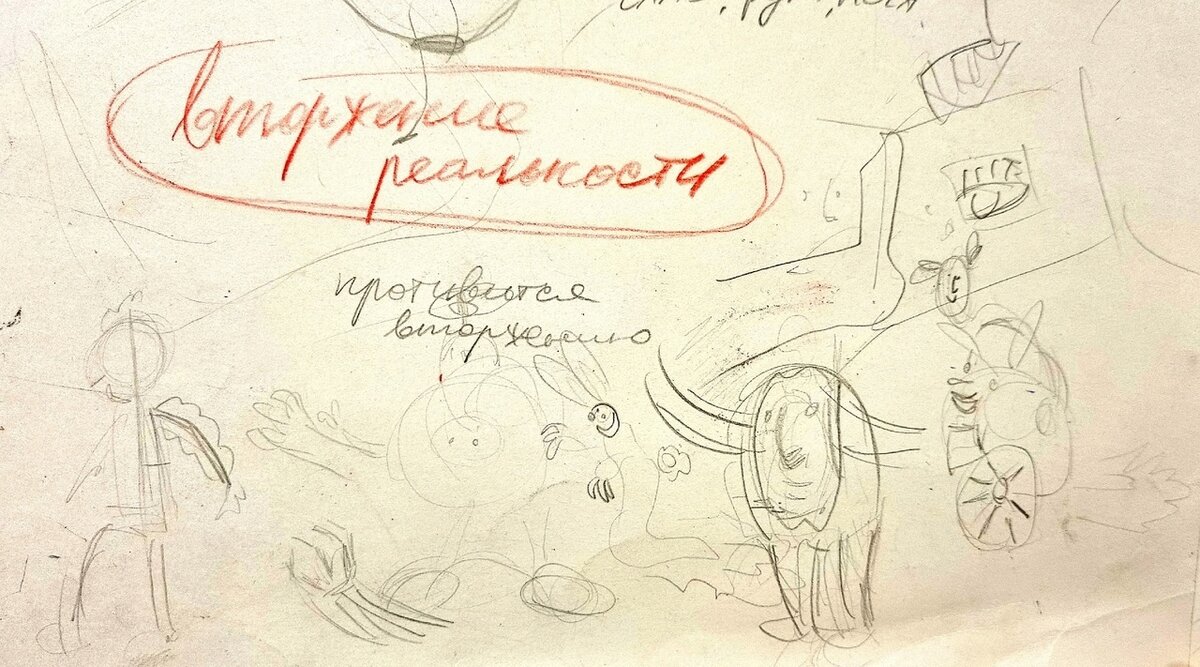 вторжение
реальности
противится
вторжению